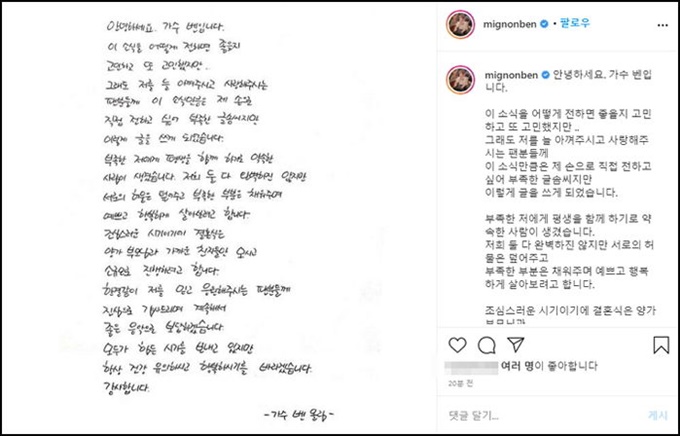 안녕하세요. 가수 벤입니다.
이 소식을 어떻게 전하면 좋을지
고민하고 또 고민했지만..
그래도 저를 늘 아껴주시고 사랑해주시는
팬분들께 이 소식만큼은 제 손으로
직접 전하고 싶어 부족한 글솜씨지만
이렇게 글을 쓰게 되었습니다.
부족한 저에게 평생을 함께 하기로 약속한
사람이 생겼습니다. 저희 둘 다 완벽하진 않지만
서로의 허물은 덮어주고 부족한 부분은 채워주며
예쁘고 행복하게 살아보려고 합니다.
조심스러운 시기이기에 결혼식은
양가 부모님과 가까운 친지분들만 모시고
소규모로 진행하려고 합니다.
한결같이 저를 믿고 응원해주시는 팬분들께
진심으로 감사드리며 계속해서
좋은 음악으로 보답하겠습니다.
모두가 힘든 시기를 보내고 있지만
항상 건강 유의하시고 행복하시기를 바라겠습니다.
감사합니다.
-가수 벤 올림-
mignonben • 팔로우
mignonben 안녕하세요. 가수 벤입
니다.
이 소식을 어떻게 전하면 좋을지 고민
하고 또 고민했지만 ..
그래도 저를 늘 아껴주시고 사랑해주
시는 팬분들께
이 소식만큼은 제 손으로 직접 전하고
싶어 부족한 글솜씨지만
이렇게 글을 쓰게 되었습니다.
부족한 저에게 평생을 함께 하기로 약
속한 사람이 생겼습니다.
저희 둘 다 완벽하진 않지만 서로의 허
물은 덮어주고
부족한 부분은 채워주며 예쁘고 행복
하게 살아보려고 합니다.
조심스러운 시기이기에 결혼식은 양가
부모님과
여러 명이 좋아합니다
20분 전
댓글 달기...
게시